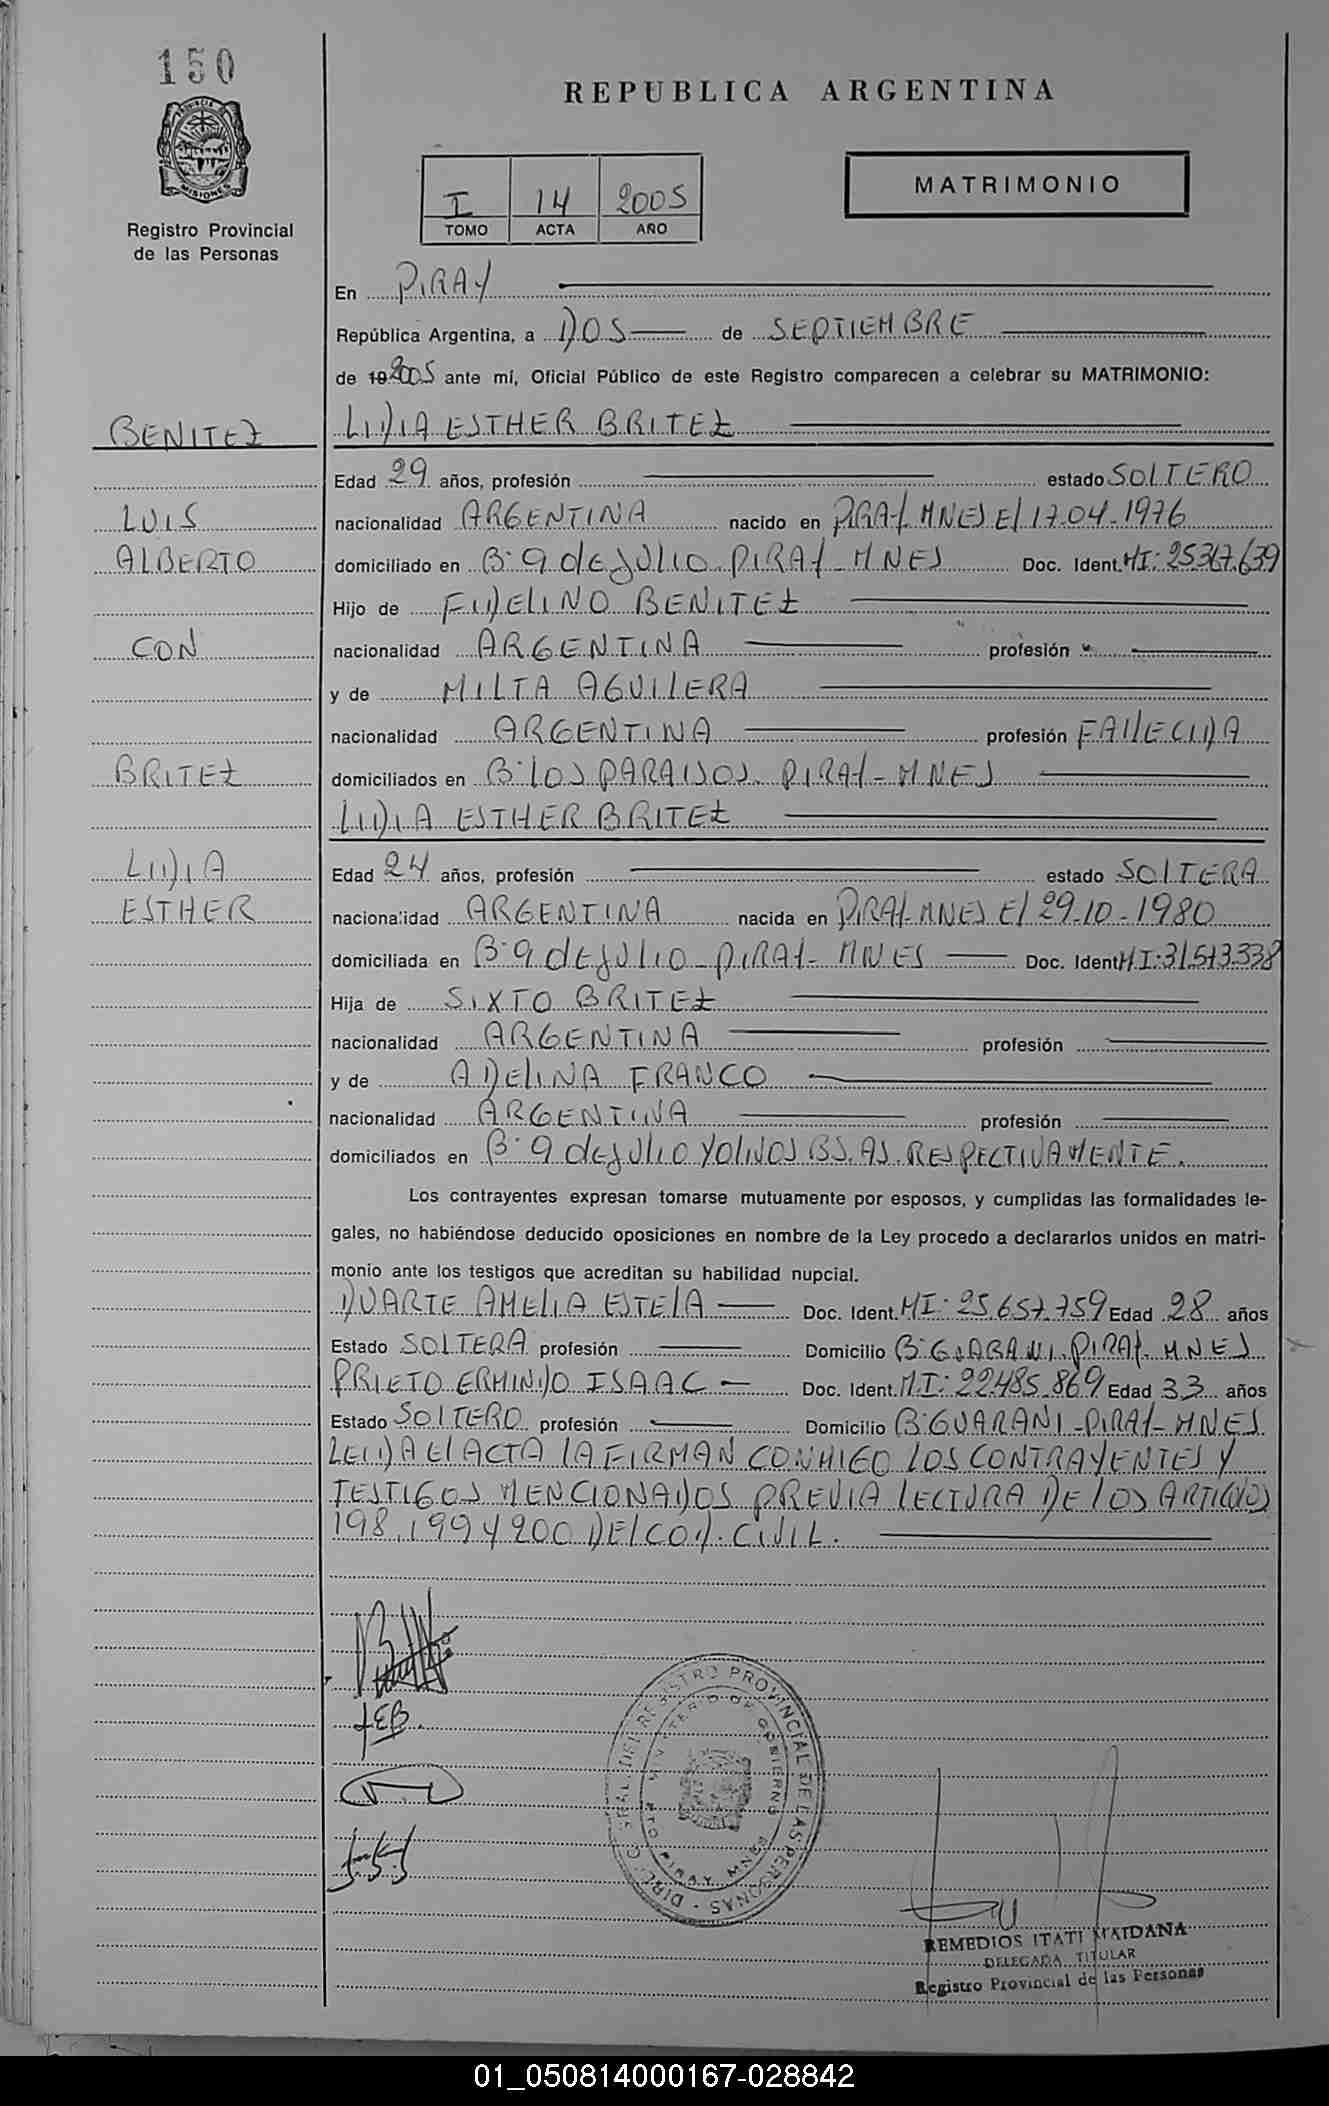 150
REPUBLICA ARGENTINA
MISIONES
Registro Provincial
de las Personas
I 14 2005
TOMO ACTA AÑO
MATRIMONIO
En PIRAY
República Argentina, a DOS de SEPTIEMBRE
de 19 2005 ante mí, Oficial Público de este Registro comparecen a celebrar su MATRIMONIO:
BENITEZ
LUIS
ALBERTO
CON
BRITEZ
LIDIA
ESTHER
LIDIA ESTHER BRITEZ
Edad 29 años, profesión estado SOLTERO
nacionalidad ARGENTINA nacido en PIRAY MNES El 17-04-1976
domiciliado en B: 9 de JULIO-PIRAY-MNES Doc. Ident. MI: 25.367.639
Hijo de FIDELINO BENITEZ
nacionalidad ARGENTINA profesión
y de MILTA AGUILERA
nacionalidad ARGENTINA profesión FALLECIDA
domiciliados en B: LOS PARAISOS. PIRAY-MNES
LIDIA ESTHER BRITEZ
Edad 24 años, profesión estado SOLTERA
nacionalidad ARGENTINA nacida en PIRAY-MNES El 29-10-1980
domiciliada en B: 9 de JULIO-PIRAY-MNES Doc. Ident MI: 31.573.338
Hija de SIXTO BRITEZ
nacionalidad ARGENTINA profesión
y de ADELINA FRANCO
nacionalidad ARGENTINA profesión
domiciliados en B: 9 de JULIO Y OLIVOS BS. AS. RESPECTIVAMENTE.
Los contrayentes expresan tomarse mutuamente por esposos, y cumplidas las formalidades le-
gales, no habiéndose deducido oposiciones en nombre de la Ley procedo a declararlos unidos en matri-
monio ante los testigos que acreditan su habilidad nupcial.
DUARTE AMELIA ESTELA Doc. Ident. MI: 25.657.759 Edad 28 años
Estado SOLTERA profesión Domicilio B: GUARANI. PIRAY-MNES
PRIETO ERMINDO ISAAC Doc. Ident. MI: 22.485.869 Edad 33 años
Estado SOLTERO profesión Domicilio B: GUARANI-PIRAY-MNES
LEIDA El ACTA LA FIRMAN CONMIGO LOS CONTRAYENTES Y
TESTIGOS MENCIONADOS PREVIA LECTURA DE LOS ARTICULOS
198, 199 Y 200 DEL COD. CIVIL.
LEB.
REGISTRO PROVINCIAL DE LAS PERSONAS
REMEDIOS ITATI MAIDANA
DELEGADA TITULAR
Registro Provincial de las Personas
01_050814000167-028842